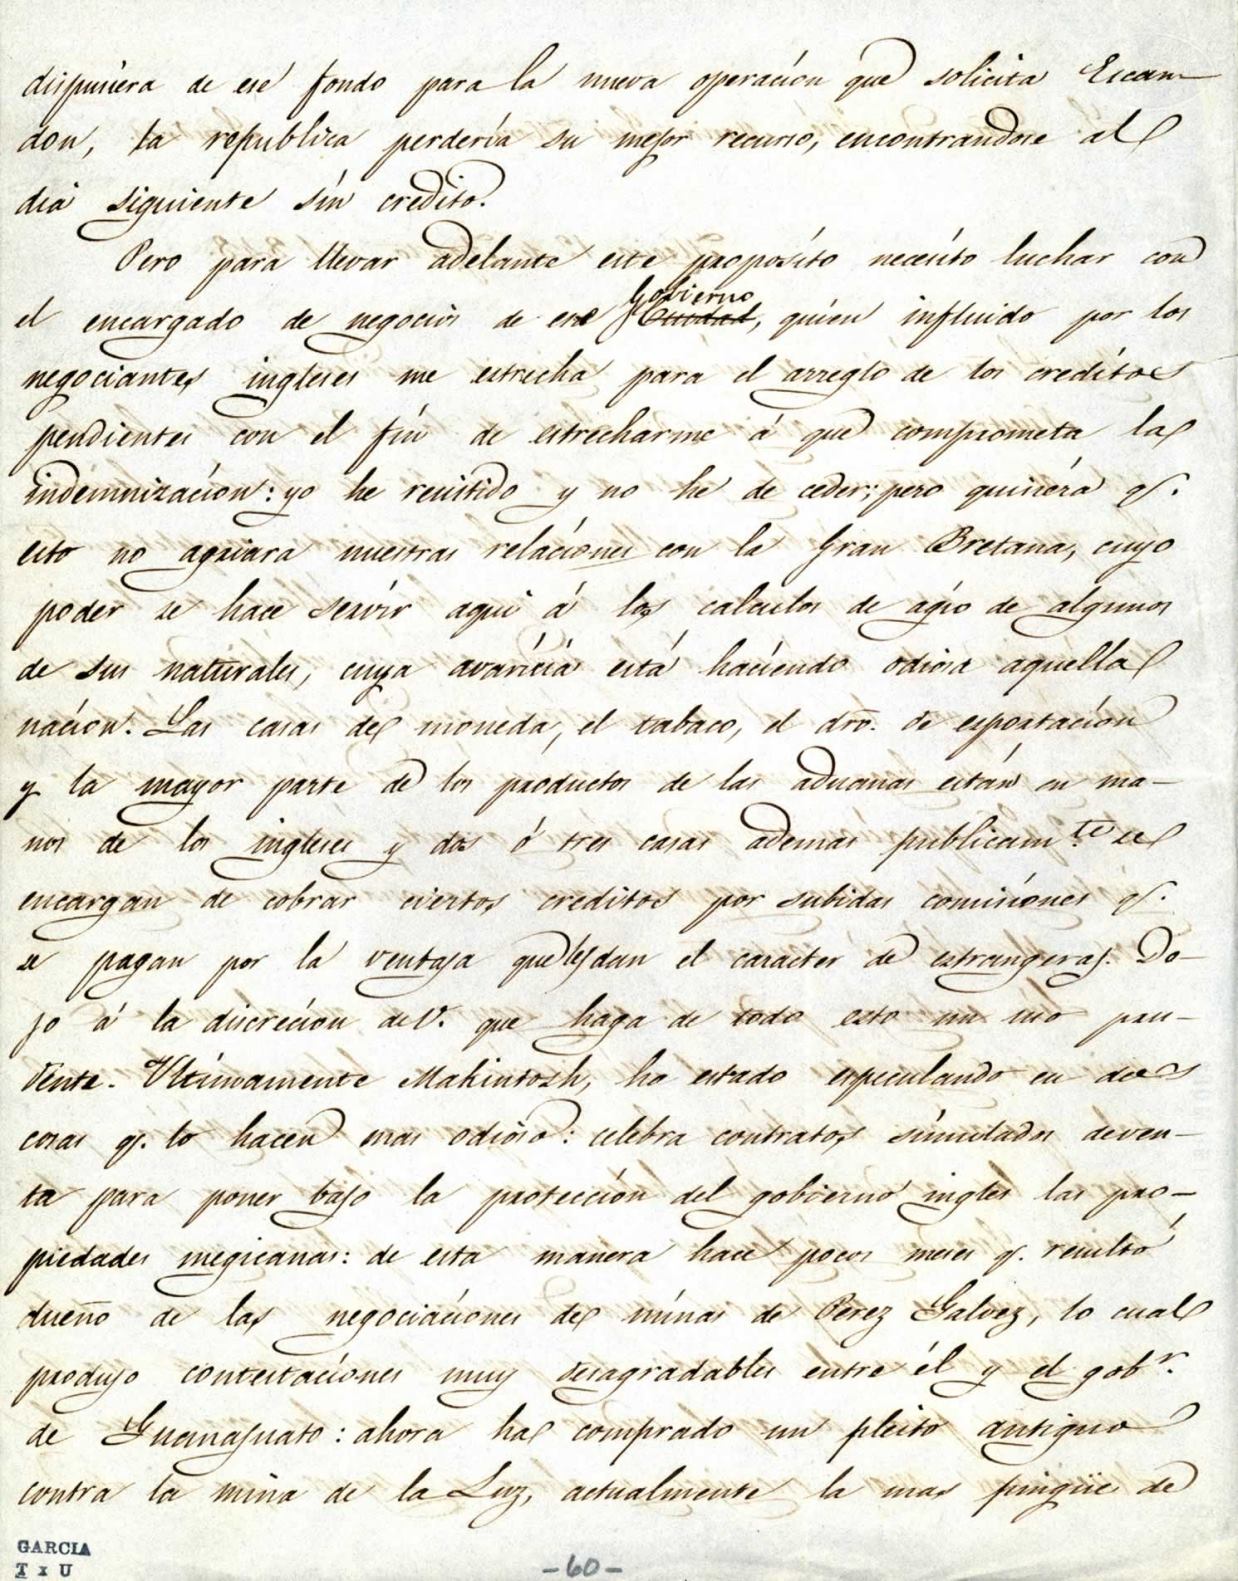 dispusiera de ese fondo para la nueva operacion que solicita Escan-
don, la republica perdería su mejor recurso, encontrandose al
dia siguiente sin credito.
Pero para llevar adelante este proposito necesito luchar con
Gobierno
el encargado de negocios de ese Ciudad, quien influido por los
negociantes ingleses me estrecha para el arreglo de los creditos
pendientes con el fin de estrecharme á que comprometa la
indemnizacion: yo he resistido y no he de ceder; pero quisiera q.
esto no agriara nuestras relaciones con la Gran Bretana, cuyo
poder se hace servir aqui á los calculos de agio de algunos
de sus naturales, cuya avaricia está haciendo odiosa aquella
nacion. Las casas de moneda, el tabaco, el dro. de esportacion
y la mayor parte de los productos de las aduanas están en ma-
nos de los ingleses y dos ó tres casas ademas publicam.te se
encargan de cobrar ciertos creditos por subidas comisiones q.
se pagan por la ventaja que les dan el caracter de estrangeras. De-
jo á la discrecion de V. que haga de todo esto un uso pru-
dente. Ultimamente Makintosh, ha estado especulando en dos
cosas q. lo hacen mas odioso: celebra contratos simulados de ven-
ta para poner bajo la protección del gobierno ingles las pro-
piedades megicanas: de esta manera hace pocos meses q. resultó
dueño de las negociaciones de minas de Perez Galvez, lo cual
produjo contestaciones muy desagradables entre él y el gob.r
de Guanajuato: ahora ha comprado un pleito antiguo
contra la mina de la Luz, actualmente la mas pingüe de
GARCIA
T x U
-60-